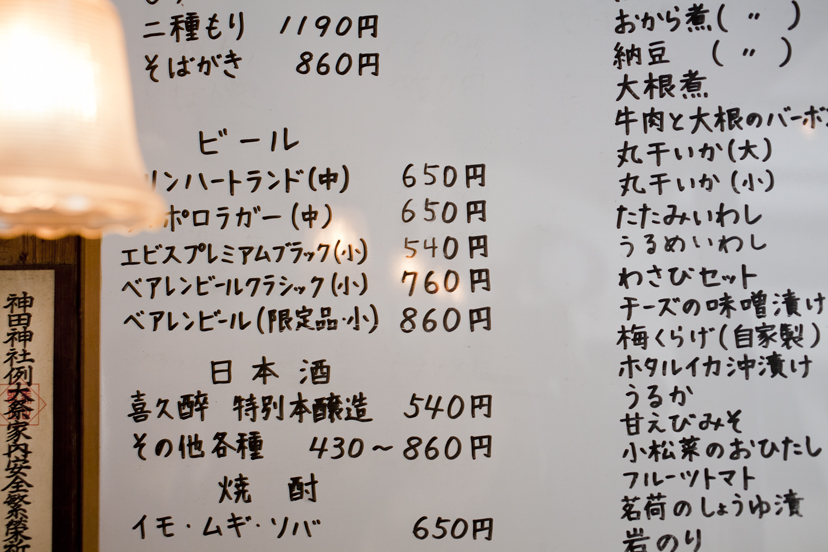 二種もり 1190円
そばがき 860円
ビール
リンハートランド(中) 650円
ポロラガー(中) 650円
エビスプレミアムブラック(小) 540円
ベアレンビールクラシック(小) 760円
ベアレンビール(限定品・小) 860円
日本酒
喜久醉 特別本醸造 540円
その他各種 430〜860円
焼酎
イモ・ムギ・ソバ 650円
おから煮(〃)
納豆 (〃)
大根煮
牛肉と大根のバーボ
丸干いか(大)
丸干いか(小)
たたみいわし
うるめいわし
わさびセット
チーズの味噌漬け
梅くらげ(自家製)
ホタルイカ沖漬け
うるか
甘えびみそ
小松菜のおひたし
フルーツトマト
茗荷のしょうゆ漬
岩のり
神田神社例大祭家内安全繁栄祈